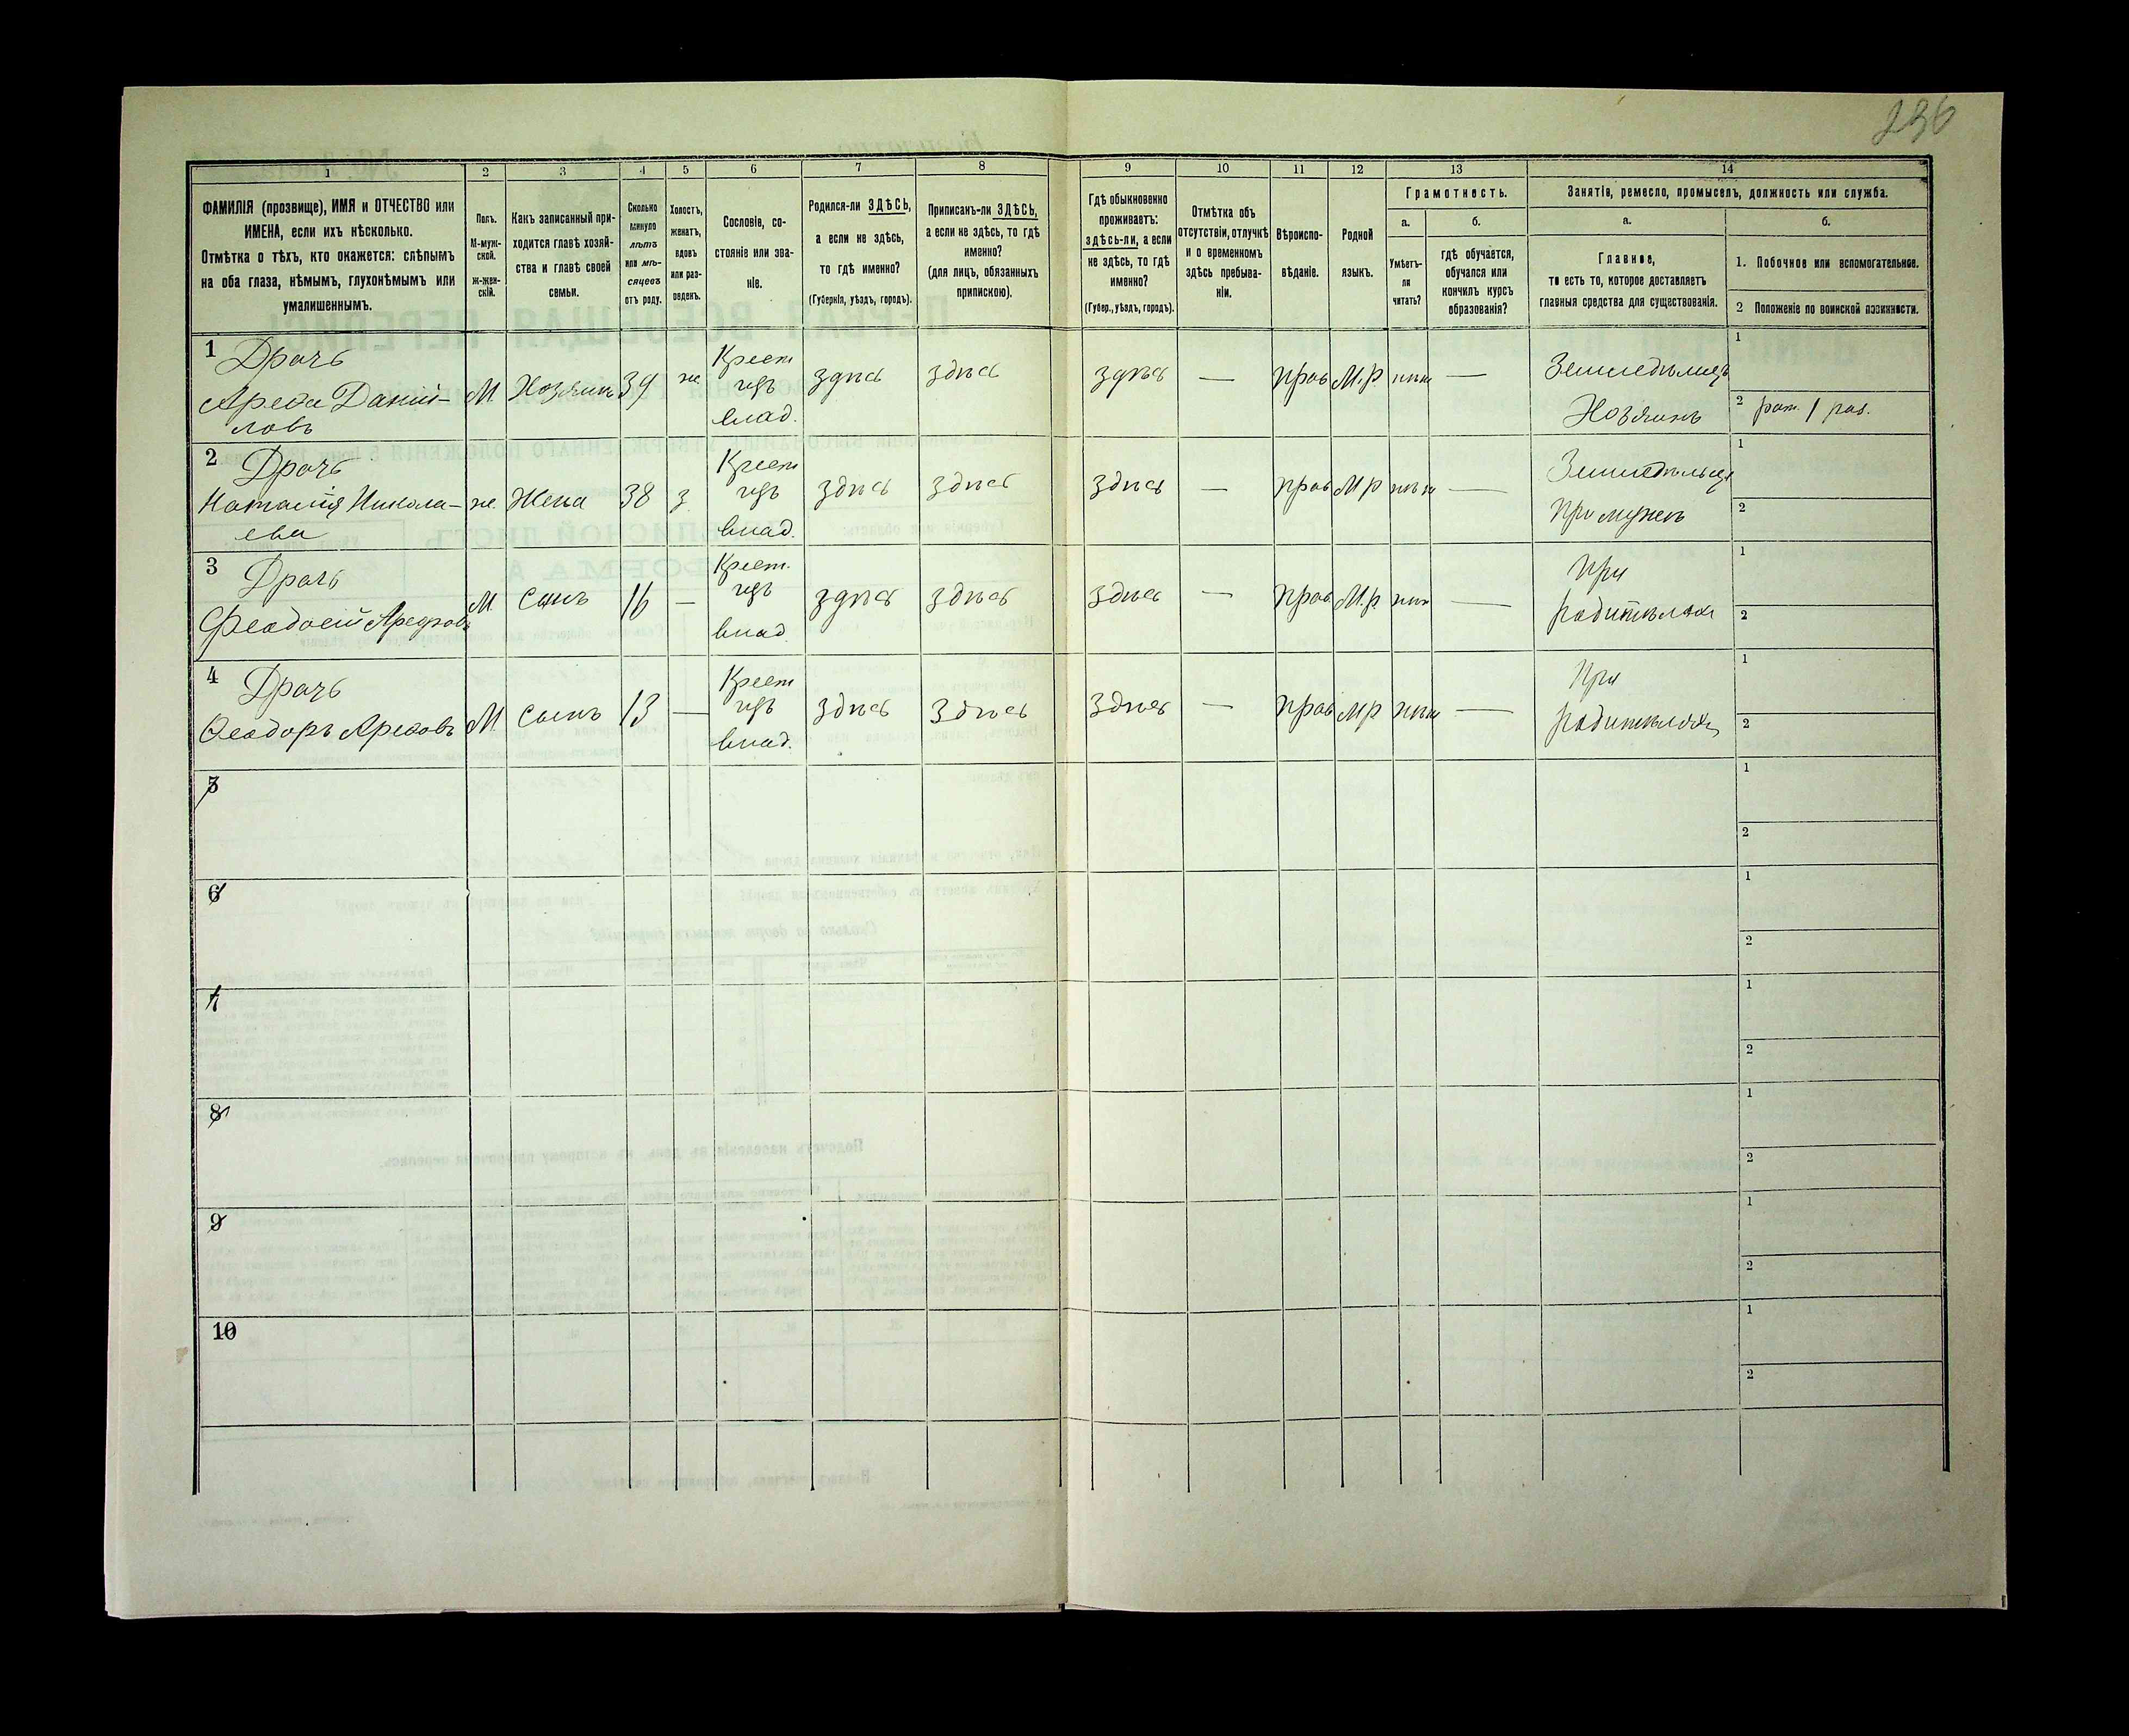 236
1 2 3 4 5 6 7 8 9 10 11 12 13 14
ФАМИЛІЯ (прозвище), ИМЯ и ОТЧЕСТВО или
ИМЕНА, если ихъ нѣсколько.
Отмѣтка о тѣхъ, кто окажется: слѣпымъ
на оба глаза, нѣмымъ, глухонѣмымъ или
умалишеннымъ.
Полъ.
М-муж-
ской.
Ж-жен-
скій.
Какъ записанный при-
ходится главѣ хозяй-
ства и главѣ своей
семьи.
Сколько
минуло
лѣтъ
или мѣ-
сяцевъ
отъ роду.
Холостъ,
женатъ,
вдовъ
или раз-
веденъ.
Сословіе, со-
стояніе или зва-
ніе.
Родился-ли ЗДѢСЬ,
а если не здѣсь,
то гдѣ именно?
(Губернія, уѣздъ, городъ).
Приписанъ-ли ЗДѢСЬ,
а если не здѣсь, то гдѣ
именно?
(для лицъ, обязанныхъ
припискою).
Гдѣ обыкновенно
проживаетъ:
здѣсь-ли, а если
не здѣсь, то гдѣ
именно?
(Губер., уѣздъ, городъ).
Отмѣтка объ
отсутствіи, отлучкѣ
и о временномъ
здѣсь пребыва-
ніи.
Вѣроиспо-
вѣданіе.
Родной
языкъ.
Грамотность.
а.
Умѣетъ-
ли
читать?
б.
гдѣ обучается,
обучался или
кончилъ курсъ
образованія?
Занятіе, ремесло, промыселъ, должность или служба.
а.
Главное,
то есть то, которое доставляетъ
главныя средства для существованія.
б.
1. Побочное или вспомогательное.
2 Положеніе по воинской повинности.
1 Драчъ
Арефа Даніи-
ловъ
М. Хозяинъ 39 же.
Крест
изъ
влад.
здѣсь здѣсь здѣсь — прав М.р. нѣт —
Земледѣлецъ
Хозяинъ
1
2 рат. 1 раз.
2 Драчъ
Наталія Никола-
ева
же. Жена 38 з.
Крест
изъ
влад.
здѣсь здѣсь здѣсь — прав М р нѣт —
Земледѣльца
При мужем
1
2
3 Драчъ
Феодосій Арефов
М. Сынъ 16 —
Крест.
изъ
влад.
здѣсь здѣсь здѣсь — прав. М.р нѣт —
При
родителях
1
2
4 Драчъ
Ѳеодоръ Арефовъ
М. Сынъ 13 —
Крест
изъ
влад.
здѣсь здѣсь здѣсь — прав мр нѣт —
При
родителяхъ
1
2
5
1
2
6
1
2
7
1
2
8
1
2
9
1
2
10
1
2